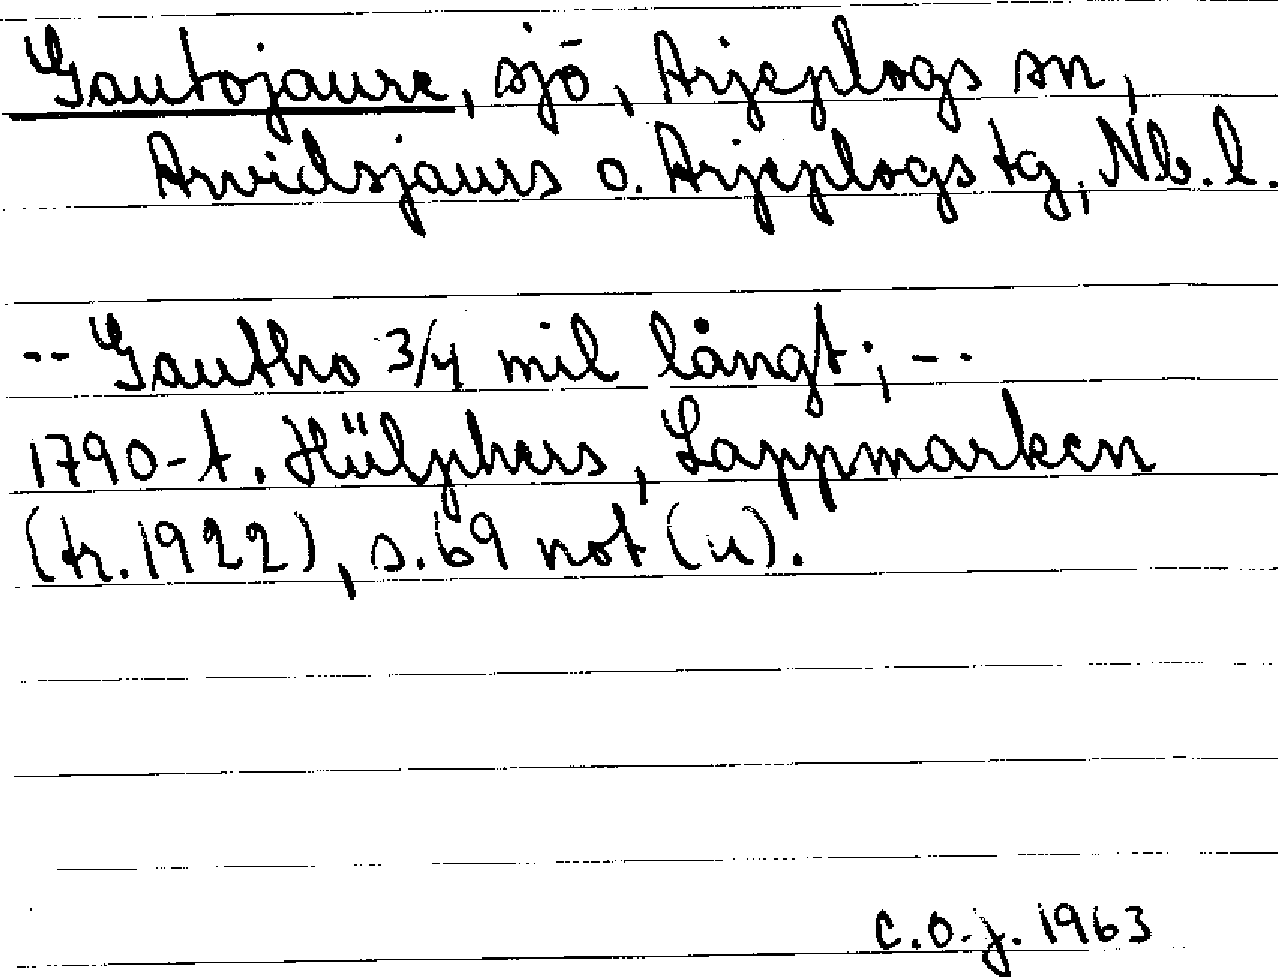 Gautojaure, sjö, Arjeplogs sn,
Arvidsjaurs o. Arjeplogs tg, Nb. l.
-- Gautho 3/4 mil långt; --
1790-t. Hülphers, Lappmarken
(tr. 1922), s. 69 not (u).
C.O.J. 1963